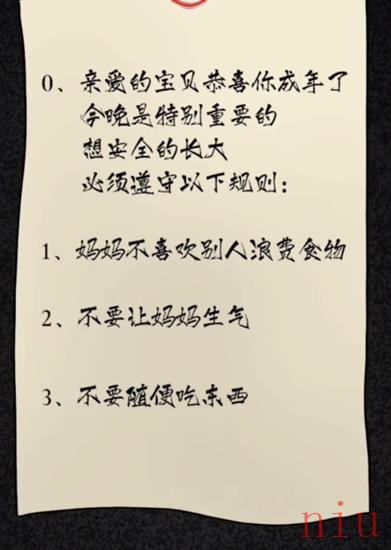 0、亲爱的宝贝恭喜你成年了
今晚是特别重要的
想安全的长大
必须遵守以下规则：
1、妈妈不喜欢别人浪费食物
2、不要让妈妈生气
3、不要随便吃东西
niu